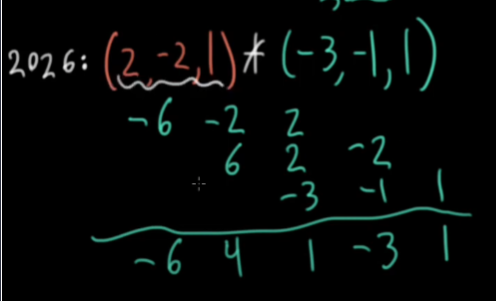 2026: (2, -2, 1) * (-3, -1, 1)
-6 -2 2
6 2 -2
-3 -1 1
-6 4 1 -3 1